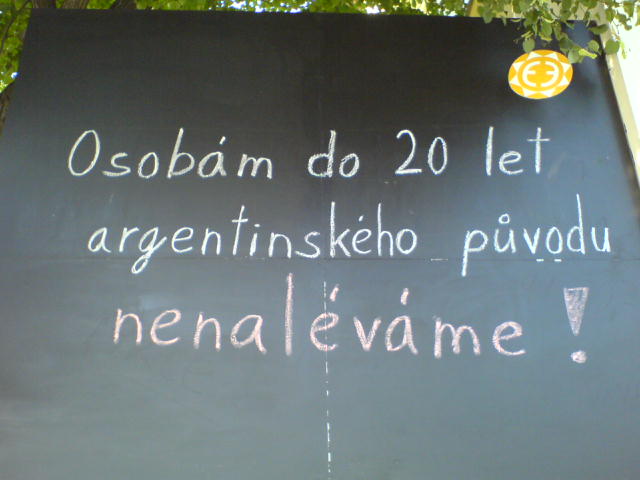 Osobám do 20 let
argentinského původu
nenaléváme!